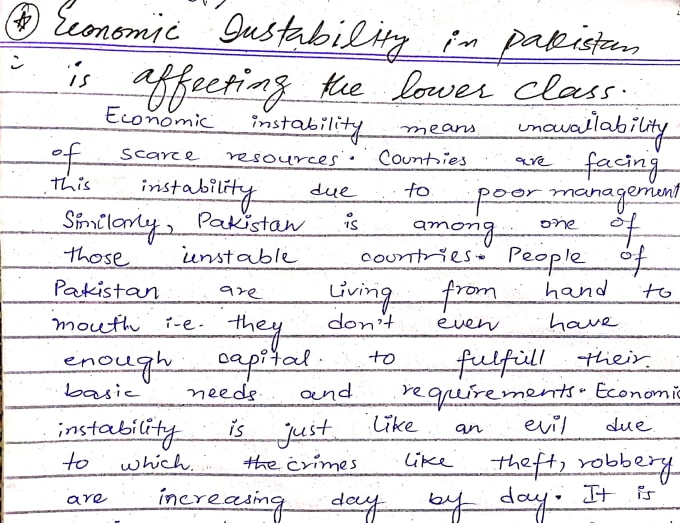 Economic Instability in pakistan
is affecting the lower class.
Economic instability means unavailability
of scarce resources. Countries are facing
this instability due to poor management
Similarly, Pakistan is among one of
those unstable countries. People of
Pakistan are living from hand to
mouth i-e. they don't even have
enough capital to fulfill their
basic needs and requirements. Economic
instability is just like an evil due
to which the crimes like theft, robbery
are increasing day by day. It is